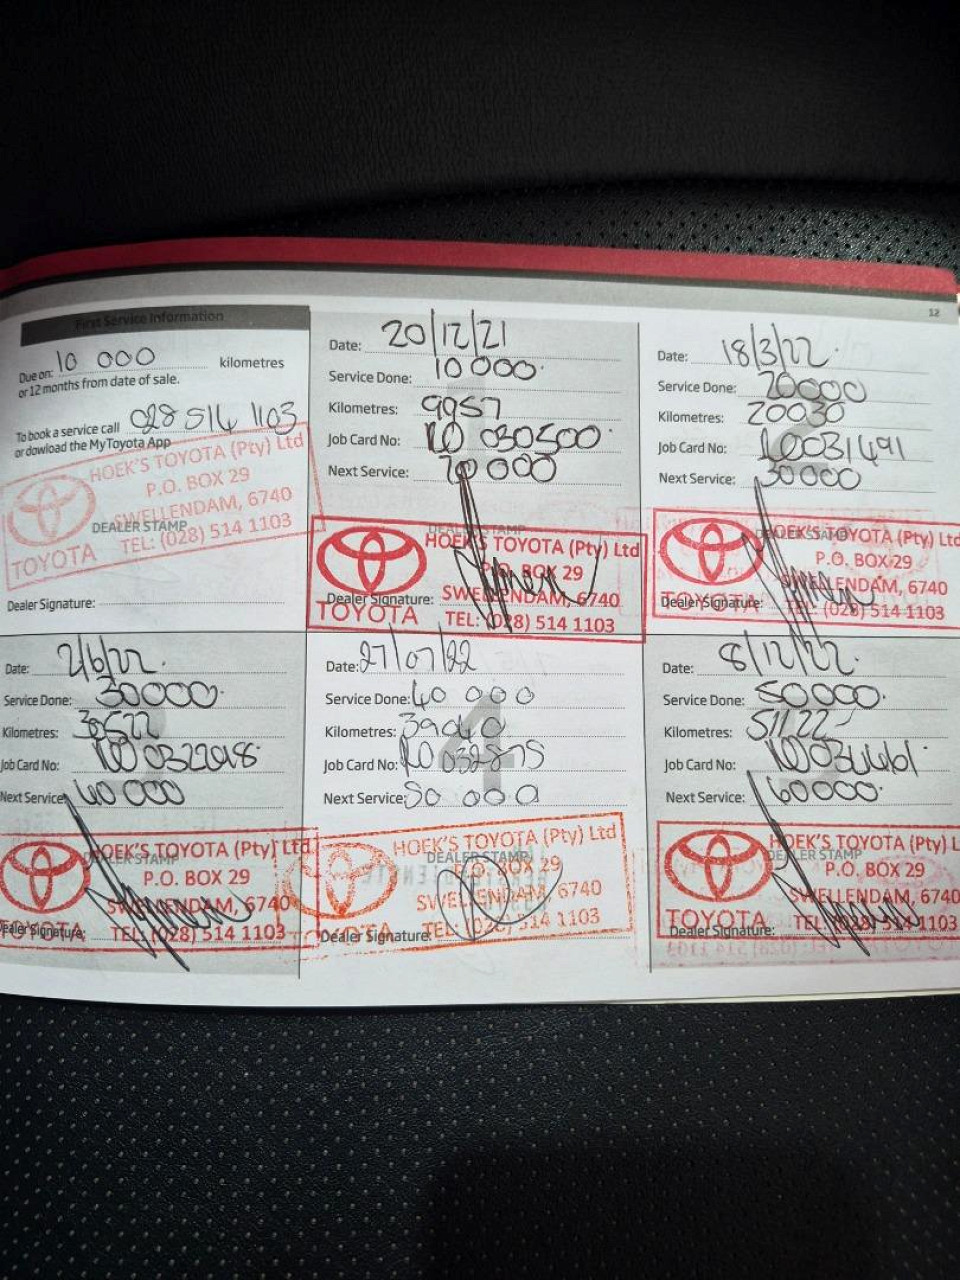 12
First Service Information
Due on: 10 000 kilometres
or 12 months from date of sale.
To book a service call 028 514 1103
or dowload the MyToyota App
HOEK'S TOYOTA (Pty) Ltd
P.O. BOX 29
SWELLENDAM, 6740
DEALER STAMP
TEL: (028) 514 1103
TOYOTA
Dealer Signature:
Date: 20/12/21
Service Done: 10 000.
Kilometres: 9957
Job Card No: 10 030500
Next Service: 20 000
DEALER STAMP
HOEK'S TOYOTA (Pty) Ltd
P.O. BOX 29
Dealer Signature: SWELLENDAM, 6740
TOYOTA TEL: (028) 514 1103
Date: 18/3/22.
Service Done: 20000
Kilometres: 20030
Job Card No: 10031491
Next Service: 30000
DEALER STAMP
HOEK'S TOYOTA (Pty) Ltd
P.O. BOX 29
SWELLENDAM, 6740
TOYOTA Dealer Signature: TEL: (028) 514 1103
Date: 2/6/22.
Service Done: 30000.
Kilometres:
Job Card No:
Next Service: 40 000
DEALER STAMP
HOEK'S TOYOTA (Pty) Ltd
P.O. BOX 29
SWELLENDAM, 6740
TOYOTA Dealer Signature: TEL: (028) 514 1103
4
Date: 27/07/22
Service Done: 40 000
Kilometres: 39040
Job Card No:
Next Service: 50 000
HOEK'S TOYOTA (Pty) Ltd
DEALER STAMP
P.O. BOX 29
SWELLENDAM, 6740
TOYOTA Dealer Signature: TEL: (028) 514 1103
Date: 8/12/22.
Service Done: 50000.
Kilometres: 51122
Job Card No:
Next Service: 60000.
HOEK'S TOYOTA (Pty) L
DEALER STAMP
P.O. BOX 29
SWELLENDAM, 6740
TOYOTA TEL: (028) 514 1103
Dealer Signature: